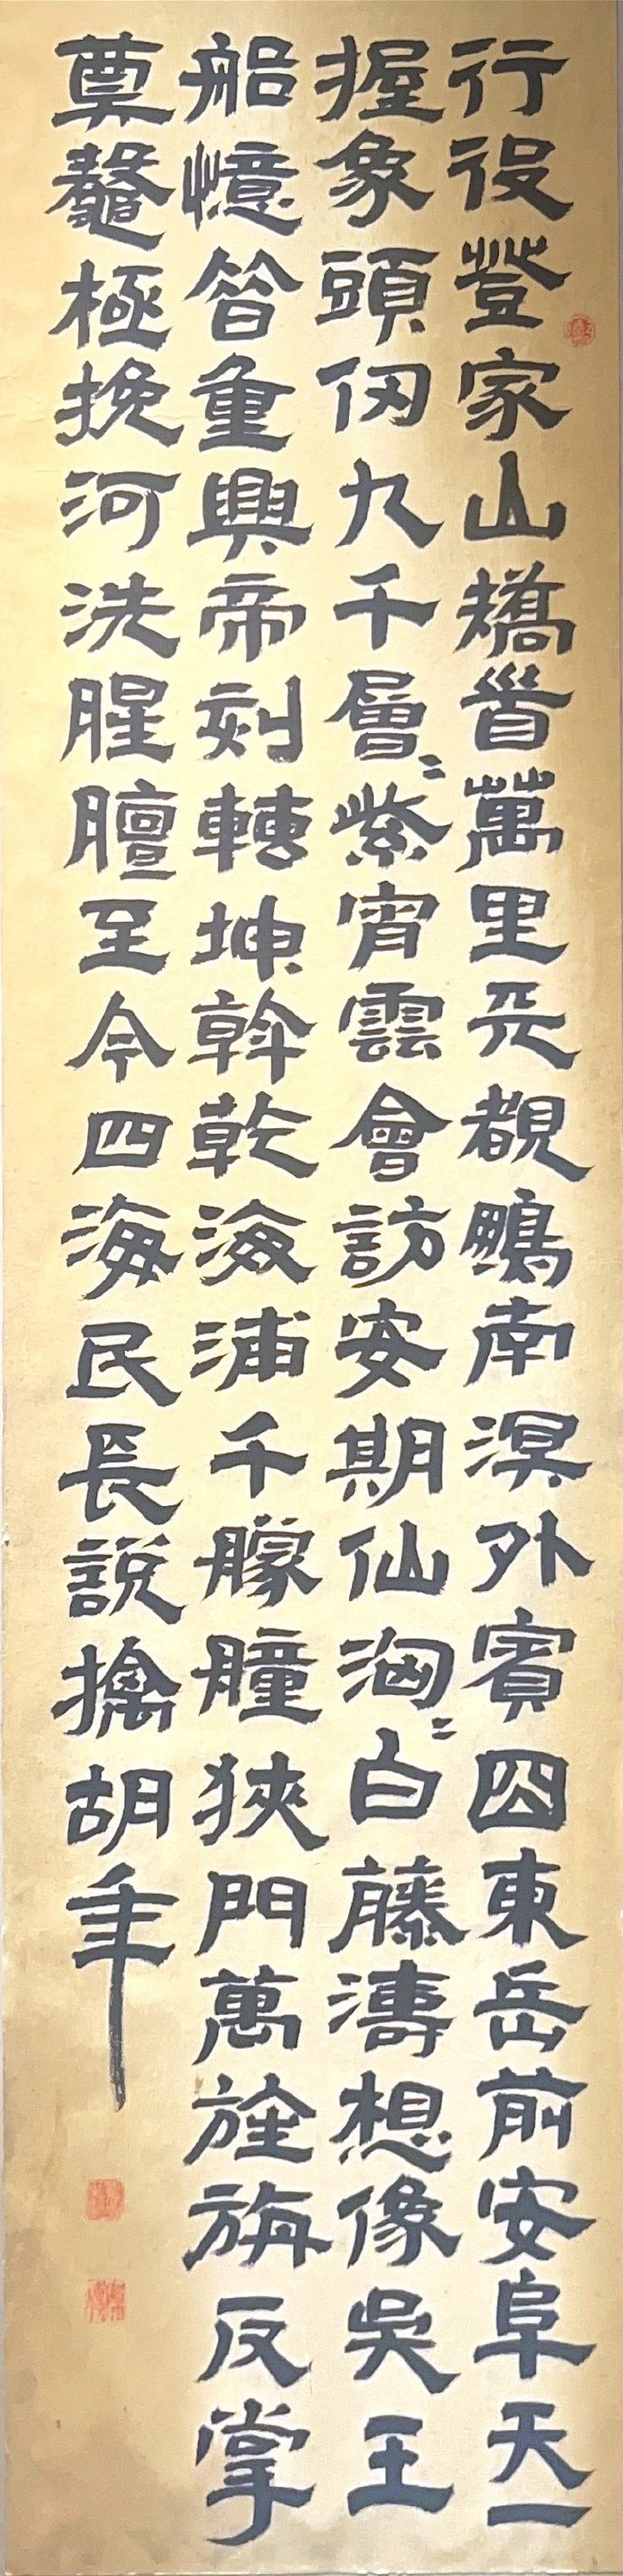 行役登家山矯首萬里天覩鵬南溟外賓囚東岳前安阜天一
握象頭仞九千層〻紫宵雲會訪安期仙洶〻白藤濤想像吳王
船憶昔重興帝刻轉坤斡乾海浦千艨艟狹門萬旌旃反掌
奠鼇極挽河洗腥膻至今四海民長說擒胡年